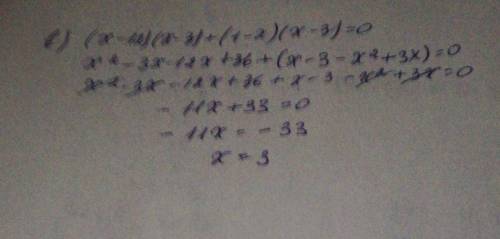 в) (x-12)(x-3)+(1-x)(x-3)=0
x²-3x-12x+36+(x-3-x²+3x)=0
x²-3x-12x+36+x-3-x²+3x=0
-11x+33=0
-11x=-33
x=3